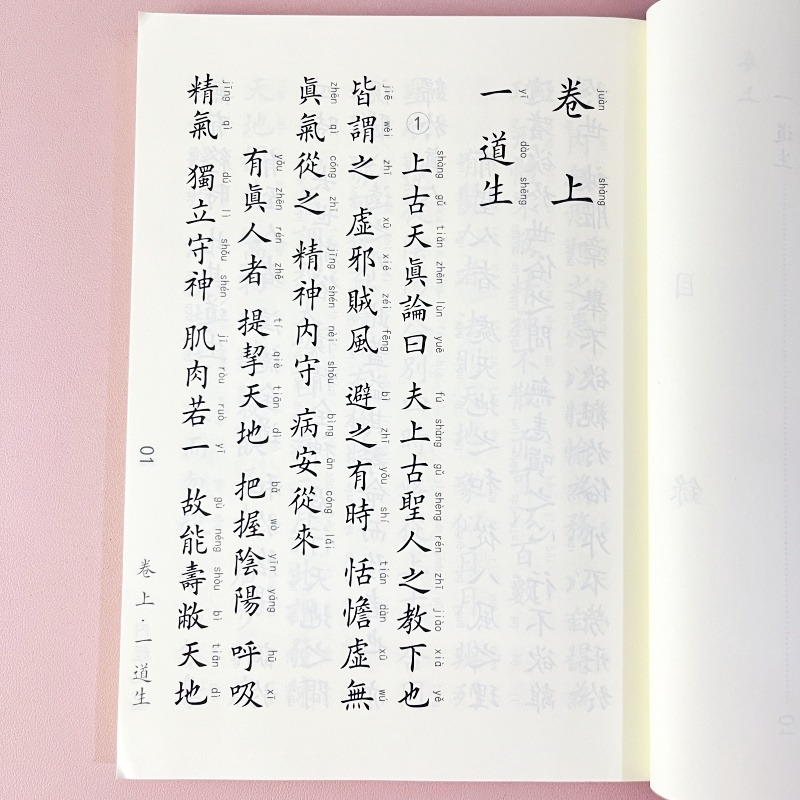 卷上
juàn shàng
一 道生
yī dào shēng
① 上古天眞論曰 夫上古聖人之教下也
shàng gǔ tiān zhēn lùn yuē fú shàng gǔ shèng rén zhī jiào xià yě
皆謂之 虛邪賊風 避之有時 恬憺虛無
jiē wèi zhī xū xié zéi fēng bì zhī yǒu shí tián dàn xū wú
眞氣從之 精神内守 病安從來
zhēn qì cóng zhī jīng shén nèi shǒu bìng ān cóng lái
有眞人者 提挈天地 把握陰陽 呼吸
yǒu zhēn rén zhě tí qiè tiān dì bǎ wò yīn yáng hū xī
精氣 獨立守神 肌肉若一 故能壽敝天地
jīng qì dú lì shǒu shén jī ròu ruò yī gù néng shòu bì tiān dì
01
卷上·一 道生